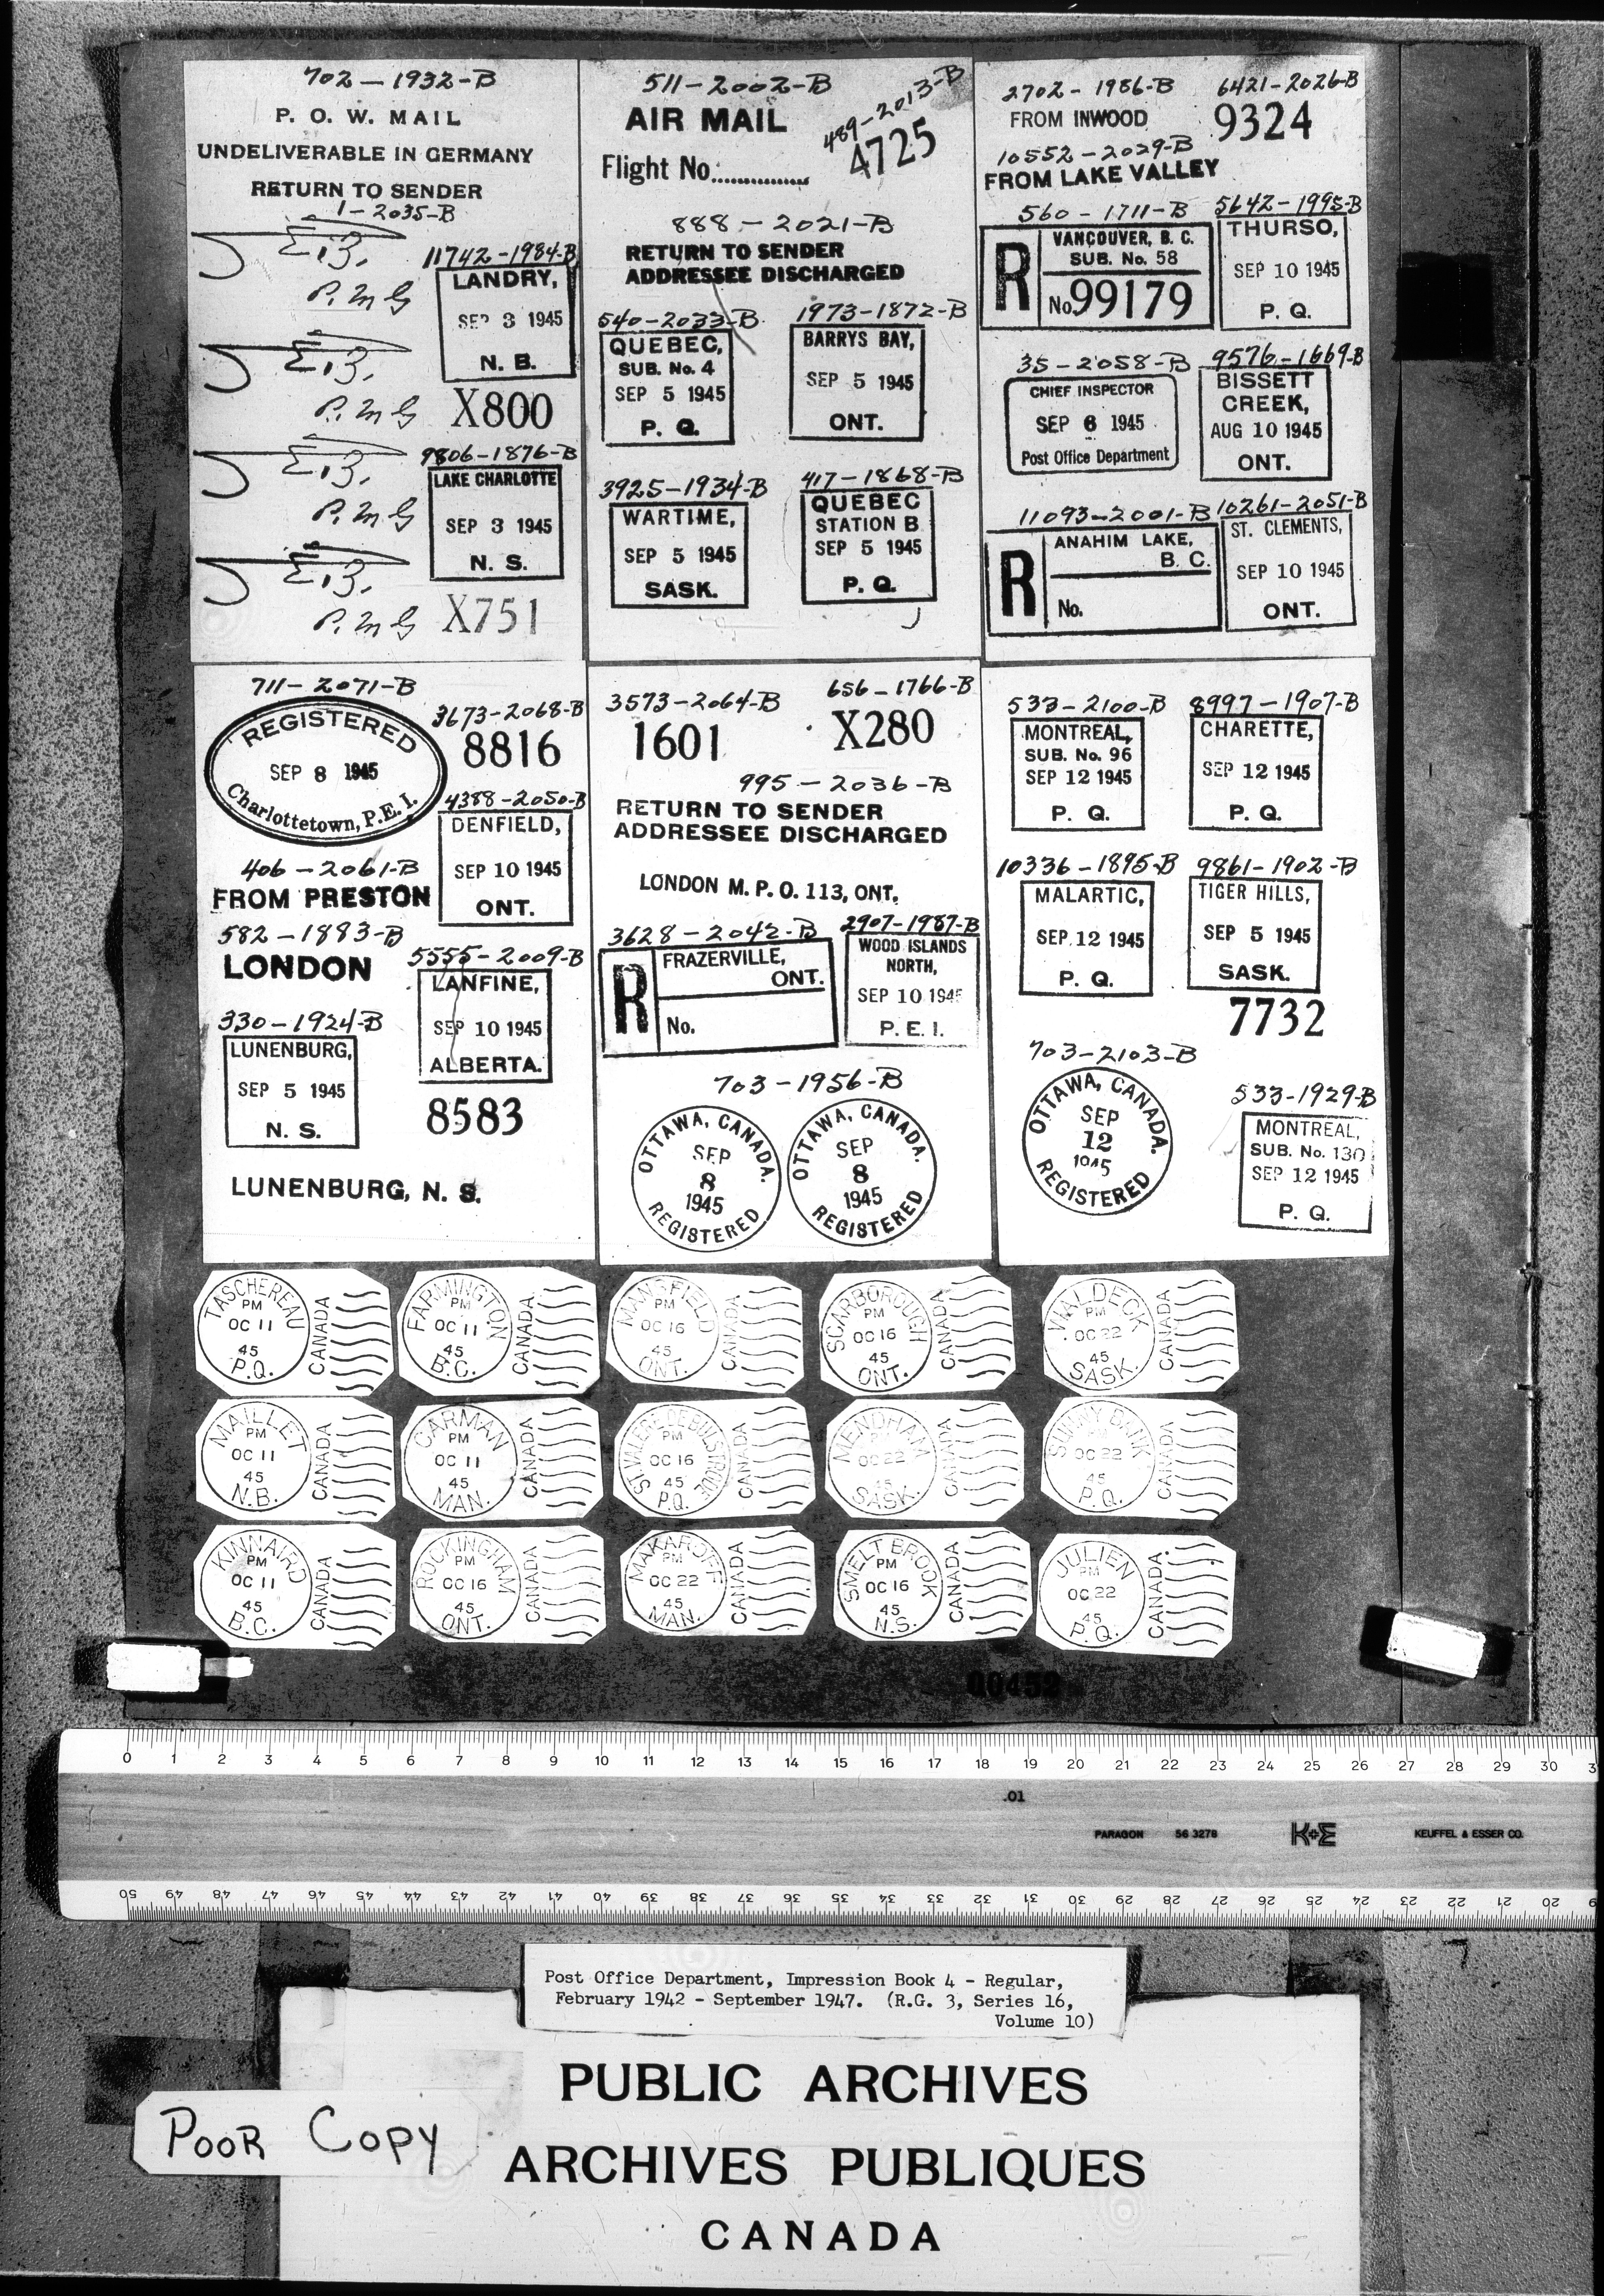 702-1932-B
P. O. W. MAIL
UNDELIVERABLE IN GERMANY
RETURN TO SENDER
1-2035-B
P.M.G
11742-1984-B
LANDRY,
SEP 3 1945
N. B.
P.M.G
X800
9806-1876-B
LAKE CHARLOTTE
SEP 3 1945
N. S.
P.M.G
P.M.G
X751
511-2002-B
AIR MAIL
Flight No...............
489-2013-B
4725
888-2021-B
RETURN TO SENDER
ADDRESSEE DISCHARGED
540-2033-B
QUEBEC,
SUB. No. 4
SEP 5 1945
P. Q.
1973-1872-B
BARRYS BAY,
SEP 5 1945
ONT.
3925-1934-B
WARTIME,
SEP 5 1945
SASK.
417-1868-B
QUEBEC
STATION B
SEP 5 1945
P. Q.
2702-1986-B
FROM INWOOD
6421-2026-B
9324
10552-2029-B
FROM LAKE VALLEY
560-1711-B
R
VANCOUVER, B. C.
SUB. No. 58
No. 99179
5642-1995-B
THURSO,
SEP 10 1945
P. Q.
35-2058-B
CHIEF INSPECTOR
SEP 6 1945
Post Office Department
9576-1669-B
BISSETT
CREEK,
AUG 10 1945
ONT.
11093-2001-B
R
ANAHIM LAKE,
B. C.
No.
10261-2051-B
ST. CLEMENTS,
SEP 10 1945
ONT.
711-2071-B
REGISTERED
SEP 8 1945
Charlottetown, P.E.I.
3673-2068-B
8816
4388-2050-B
DENFIELD,
SEP 10 1945
ONT.
406-2061-B
FROM PRESTON
582-1883-B
LONDON
5555-2009-B
LANFINE,
SEP 10 1945
ALBERTA.
330-1924-B
LUNENBURG,
SEP 5 1945
N. S.
8583
LUNENBURG, N. S.
3573-2064-B
1601
656-1766-B
X280
995-2036-B
RETURN TO SENDER
ADDRESSEE DISCHARGED
LONDON M. P. O. 113, ONT.
3628-2042-B
R
FRAZERVILLE,
ONT.
No.
2907-1987-B
WOOD ISLANDS
NORTH,
SEP 10 1945
P. E. I.
703-1956-B
OTTAWA, CANADA.
SEP
8
1945
REGISTERED
OTTAWA, CANADA.
SEP
8
1945
REGISTERED
533-2100-B
MONTREAL,
SUB. No. 96
SEP 12 1945
P. Q.
8997-1907-B
CHARETTE,
SEP 12 1945
P. Q.
10336-1895-B
MALARTIC,
SEP 12 1945
P. Q.
9861-1902-B
TIGER HILLS,
SEP 5 1945
SASK.
7732
703-2103-B
OTTAWA, CANADA.
SEP
12
1945
REGISTERED
533-1929-B
MONTREAL,
SUB. No. 130
SEP 12 1945
P. Q.
TASCHEREAU
PM
OC 11
45
P.Q.
CANADA
FARMINGTON
PM
OC 11
45
B.C.
CANADA
MANSFIELD
PM
OC 16
45
ONT.
CANADA
SCARBOROUGH
PM
OC 16
45
ONT.
CANADA
WALDECK
PM
OC 22
45
SASK.
CANADA
MAILLET
PM
OC 11
45
N.B.
CANADA
CARMAN
PM
OC 11
45
MAN.
CANADA
ST. VALERE DE BULSTRODE
PM
OC 16
45
P.Q.
CANADA
MENDHAM
PM
OC 22
45
SASK.
CANADA
SUNNY BANK
PM
OC 22
45
P.Q.
CANADA
KINNAIRD
PM
OC 11
45
B.C.
CANADA
ROCKINGHAM
PM
OC 16
45
ONT.
CANADA
MAKAROFF
PM
OC 22
45
MAN.
CANADA
SMELT BROOK
PM
OC 16
45
N.S.
CANADA
JULIEN
PM
OC 22
45
P.Q.
CANADA
00452
0 1 2 3 4 5 6 7 8 9 10 11 12 13 14 15 16 17 18 19 20 21 22 23 24 25 26 27 28 29 30 3
.01
PARAGON 56 3278 K+E KEUFFEL & ESSER CO.
50 49 48 47 46 45 44 43 42 41 40 39 38 37 36 35 34 33 32 31 30 29 28 27 26 25 24 23 22 21 20
Post Office Department, Impression Book 4 - Regular,
February 1942 - September 1947. (R.G. 3, Series 16,
Volume 10)
PUBLIC ARCHIVES
POOR COPY
ARCHIVES PUBLIQUES
CANADA